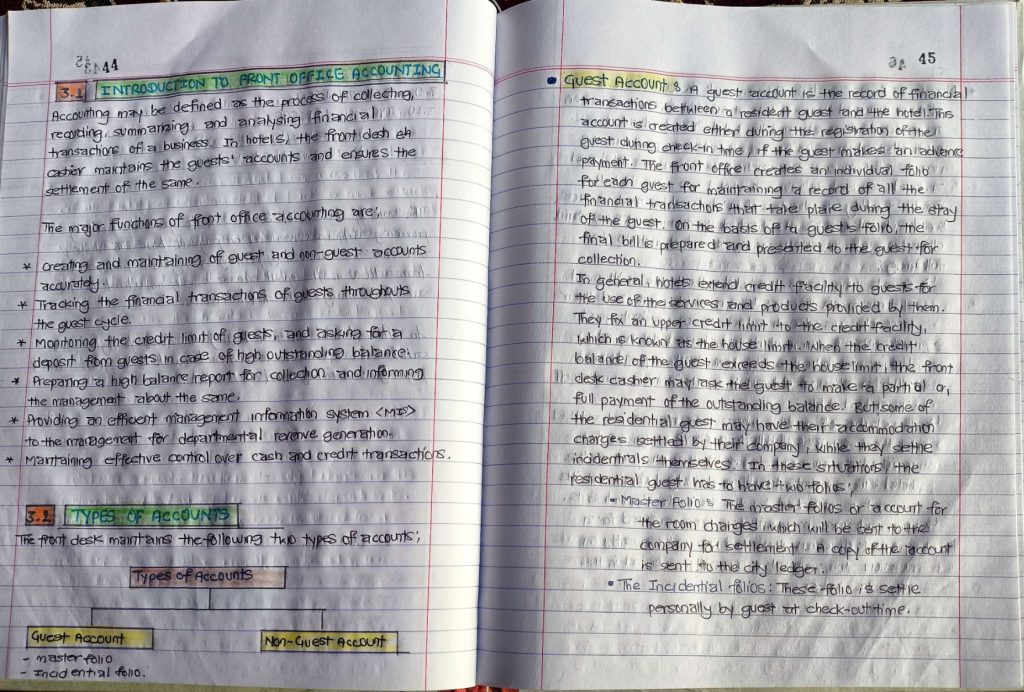 44
3.1 INTRODUCTION TO FRONT OFFICE ACCOUNTING
Accounting may be defined as the process of collecting,
recording, summarizing, and analysing financial
transactions of a business. In hotels, the front desk
cashier maintains the guests' accounts and ensures the
settlement of the same.
The major functions of front office accounting are;
* Creating and maintaining of guest and non-guest accounts
accurately.
* Tracking the financial transactions of guests throughouts
the guest cycle.
* Monitoring the credit limit of guests, and asking for a
deposit from guests in case of high outstanding balance.
* Preparing a high balance report for collection and informing
the management about the same.
* Providing an efficient management information system <MIS>
to the management for departmental revenue generation.
* Maintaining effective control over cash and credit transactions.
3.2 TYPES OF ACCOUNTS
The front desk maintains the following two types of accounts;
Types of Accounts
Guest Account
Non-Guest Account
- master folio
- Incidential folio.
45
• Guest Account : A guest account is the record of financial
transactions between a resident guest and the hotel. This
account is created either during the registration of the
guest during check-in time, if the guest makes an advance
payment. The front office creates an individual folio
for each guest for maintaining a record of all the
financial transactions that take place during the stay
of the guest. On the basis of a guest's folio, the
final bill is prepared and presented to the guest for
collection.
In general, hotels extend credit facility to guests for
the use of the services and products provined by them.
They fix an upper credit limit to the credit facility,
which is known as the house limit. When the credit
balance of the guest exceeds the house limit, the front
desk casher may ask the guest to make a partial or,
full payment of the outstanding balance. But some of
the residential guest may have their accommodation
charges settled by their company, while they settle
incidentrals themselves. In these situations, the
residential guest has to have two folios;
• Master Folio : The master folios or account for
the room charges, which will be sent to the
company for settlement. A copy of the account
is sent to the city ledger.
• The Incidential folios: These folio is settle
personally by guest at check-out time.